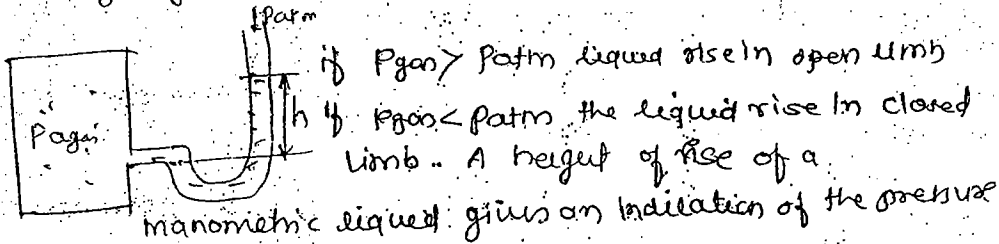 Patm
if Pgas > Patm liquid rise in open limb
Pgas
h
if Pgas < Patm the liquid rise in closed
limb.. A height of rise of a
manometric liquid gives an indication of the pressure